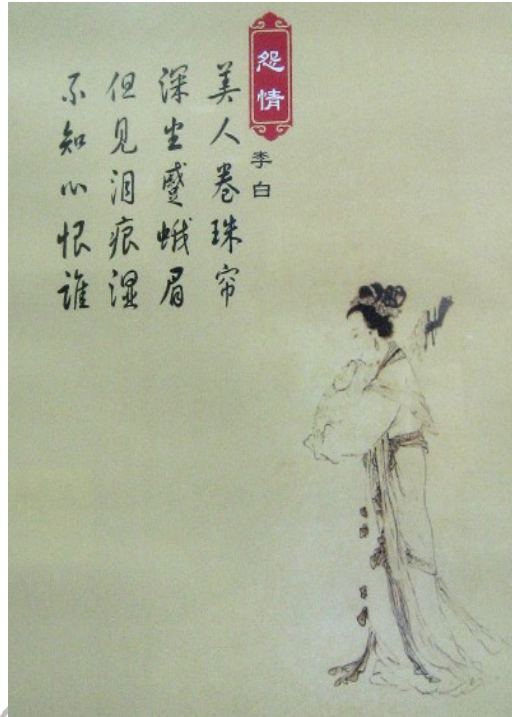 怨情
李白
美人卷珠帘
深坐蹙蛾眉
但见泪痕湿
不知心恨谁